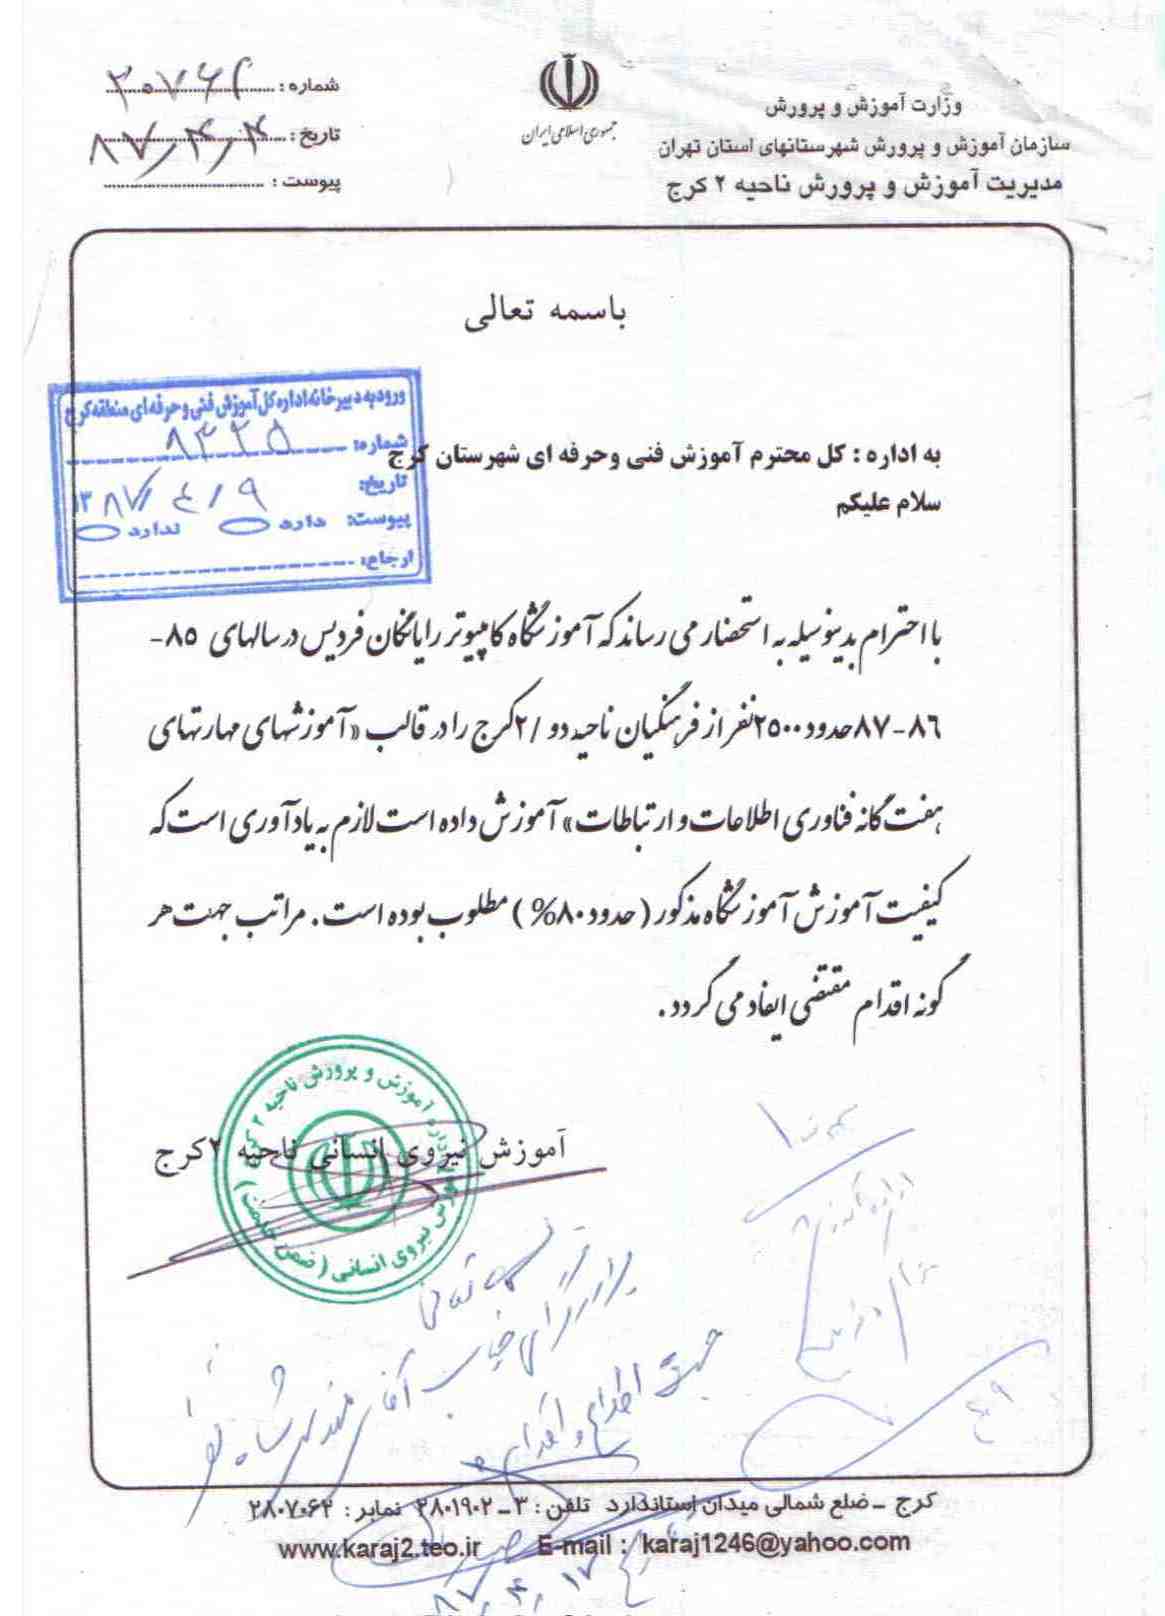 وزارت آموزش و پرورش
سازمان آموزش و پرورش شهرستانهای استان تهران
مدیریت آموزش و پرورش ناحیه ۲ کرج
جمهوری اسلامی ایران
شماره :
تاریخ : ۸۷/۴/۴
پیوست :
باسمه تعالی
ورود به دبیرخانه اداره کل آموزش فنی و حرفه ای منطقه کرج
شماره: ۸۳۲۵
تاریخ: ۱۳۸۷/۴/۹
پیوست: دارد ندارد
ارجاع:
به اداره : کل محترم آموزش فنی وحرفه ای شهرستان کرج
سلام علیکم
با احترام بدینوسیله به استحضار می رساند که آموزشگاه کامپیوتر رایانگان فردیس در سالهای ۸۵-
۸۶-۸۷ حدود ۲۵۰۰ نفر از فرهنگیان ناحیه دو /۲ کرج را در قالب «آموزشهای مهارتهای
هفت گانه فناوری اطلاعات و ارتباطات» آموزش داده است لازم به یادآوری است که
کیفیت آموزش آموزشگاه مذکور ( حدود ۸۰% ) مطلوب بوده است . مراتب جهت هر
گونه اقدام مقتضی ایفاد می گردد .
آموزش نیروی انسانی ناحیه ۲ کرج
اداره آموزش و پرورش ناحیه ۲ کرج
آموزش نیروی انسانی (ضمن خدمت)
جهت اطلاع و اقدام
کرج - ضلع شمالی میدان استاندارد تلفن : ۳-۲۸۰۱۹۰۲ نمابر : ۲۸۰۷۰۶۲
www.karaj2.teo.ir E-mail : karaj1246@yahoo.com
۸۷/۴/۱۷